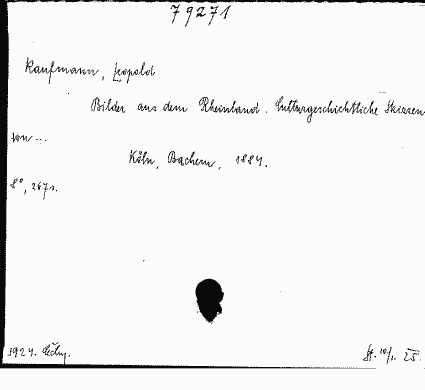 79271
Kaufmann, Leopold
Bilder aus dem Rheinland. Culturgeschichtliche Skizzen
von ...
Köln, Bachem, 1884.
8°, 267 s.
1924.
10/1. 25.